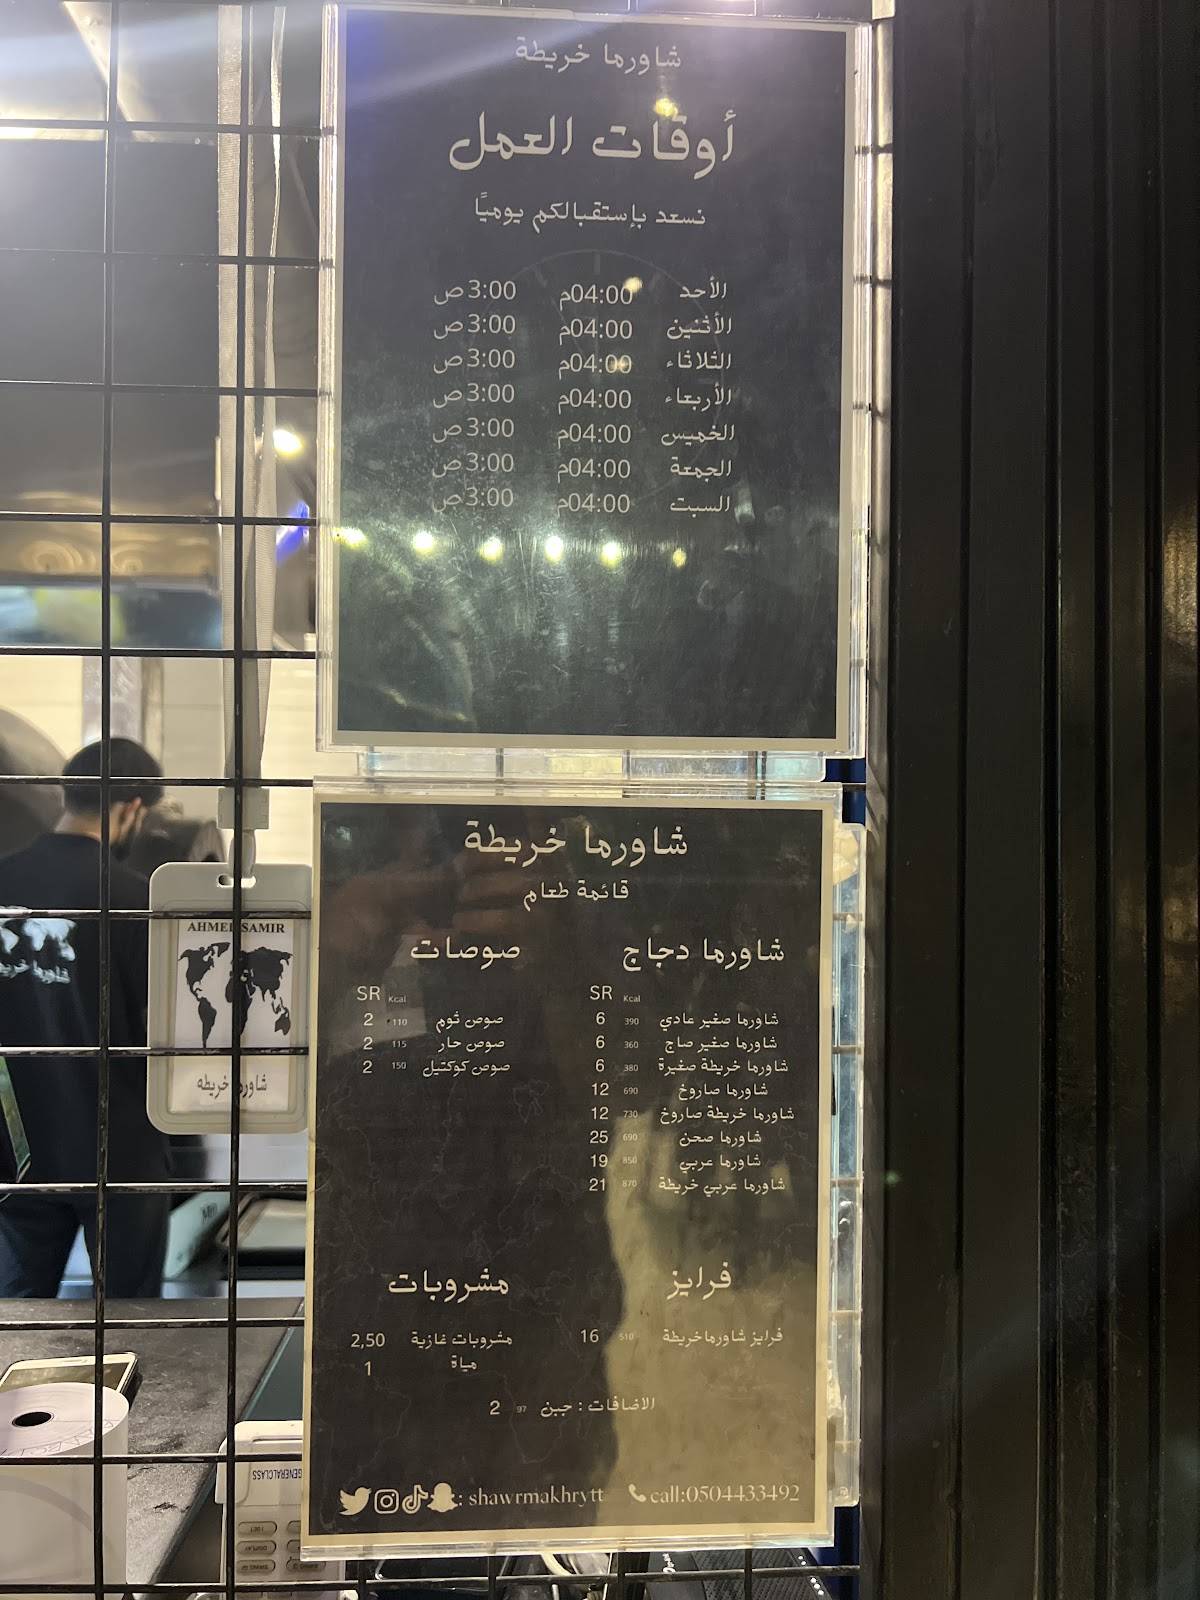 شاورما خريطة
أوقات العمل
نسعد بإستقبالكم يوميًا
الأحد 04:00م 3:00ص
الأثنين 04:00م 3:00ص
الثلاثاء 04:00م 3:00ص
الأربعاء 04:00م 3:00ص
الخميس 04:00م 3:00ص
الجمعة 04:00م 3:00ص
السبت 04:00م 3:00ص
شاورما خريطة
قائمة طعام
شاورما دجاج
SR Kcal
شاورما صغير عادي 390 6
شاورما صغير صاج 360 6
شاورما خريطة صغيرة 380 6
شاورما صاروخ 690 12
شاورما خريطة صاروخ 730 12
شاورما صحن 690 25
شاورما عربي 850 19
شاورما عربي خريطة 870 21
صوصات
SR Kcal
صوص ثوم 110 2
صوص حار 115 2
صوص كوكتيل 150 2
فرايز
فرايز شاورماخريطة 510 16
مشروبات
مشروبات غازية 2,50
مياة 1
الاضافات : جبن 97 2
: shawrmakhrytt call:0504433492
AHMED SAMIR
شاورما خريطه
GENERALCLASS